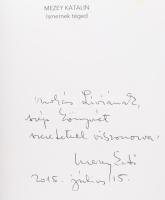 MEZEY KATALIN
Ismernek téged
Líviának,
szép könyvét
szeretettel viszonozva:
Mezey Kati
2015. július 15.